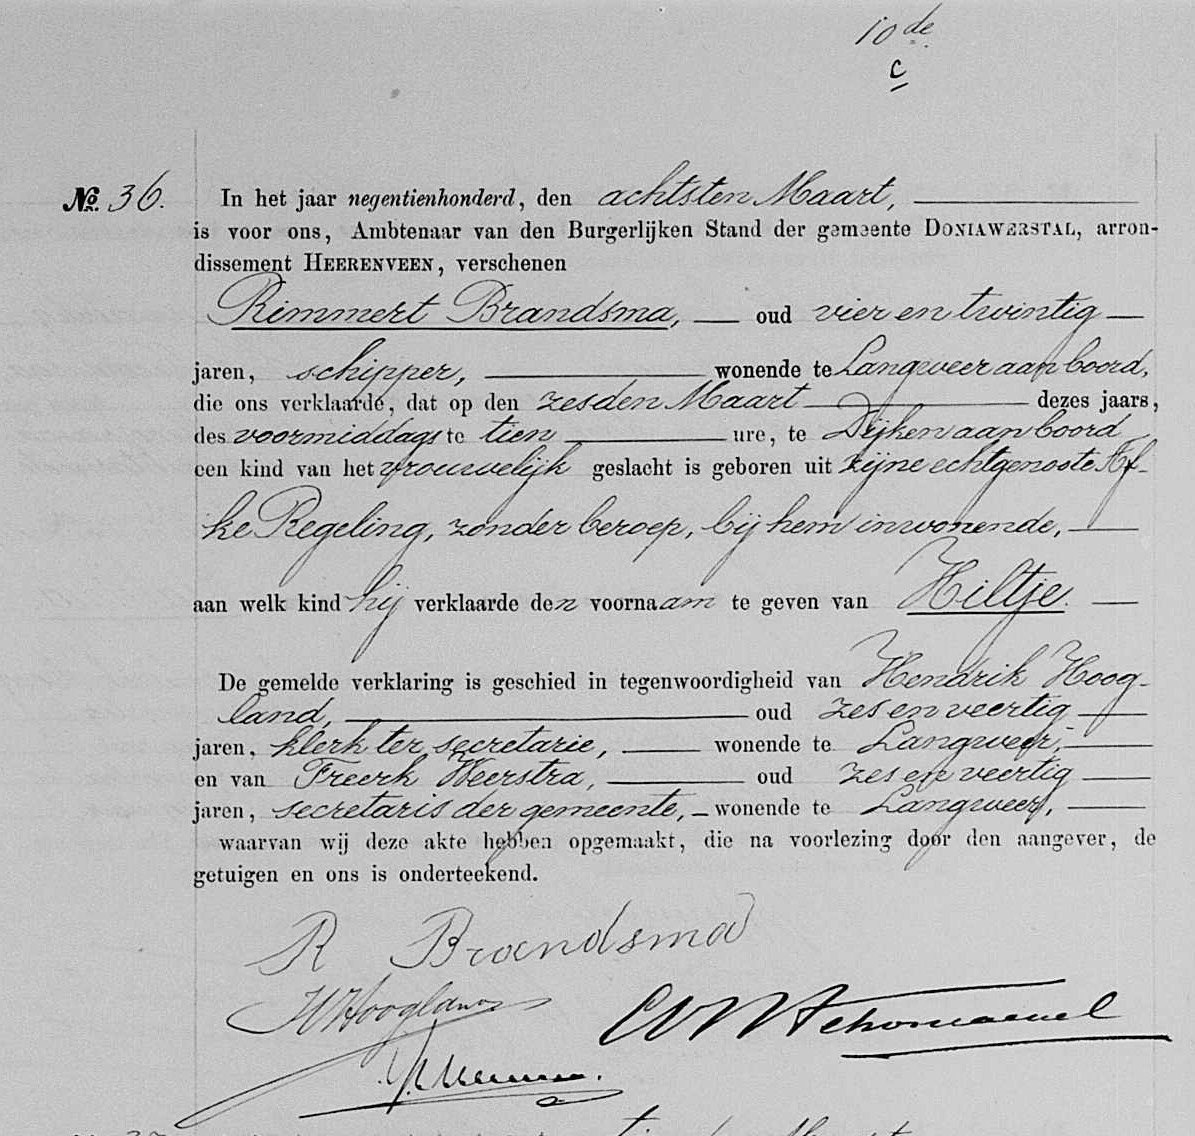 10de.
c
No. 36. In het jaar negentienhonderd, den achtsten Maart,
is voor ons, Ambtenaar van den Burgerlijken Stand der gemeente DONIAWERSTAL, arron-
dissement HEERENVEEN, verschenen
Rimmert Brandsma, oud vier en twintig
jaren, schipper, wonende te Langweer aan boord,
die ons verklaarde, dat op den zesden Maart dezes jaars,
des voormiddags te tien ure, te Dijken aan boord
een kind van het vrouwelijk geslacht is geboren uit zijne echtgenoote Af-
ke Regeling, zonder beroep, bij hem inwonende,
aan welk kind hij verklaarde den voornaam te geven van Hiltje.
De gemelde verklaring is geschied in tegenwoordigheid van Hendrik Hoog-
land, oud zes en veertig
jaren, klerk ter secretarie, wonende te Langweer,
en van Freerk Weerstra, oud zes en veertig
jaren, secretaris der gemeente, wonende te Langweer,
waarvan wij deze akte hebben opgemaakt, die na voorlezing door den aangever, de
getuigen en ons is onderteekend.
R Brandsma
HHoogland